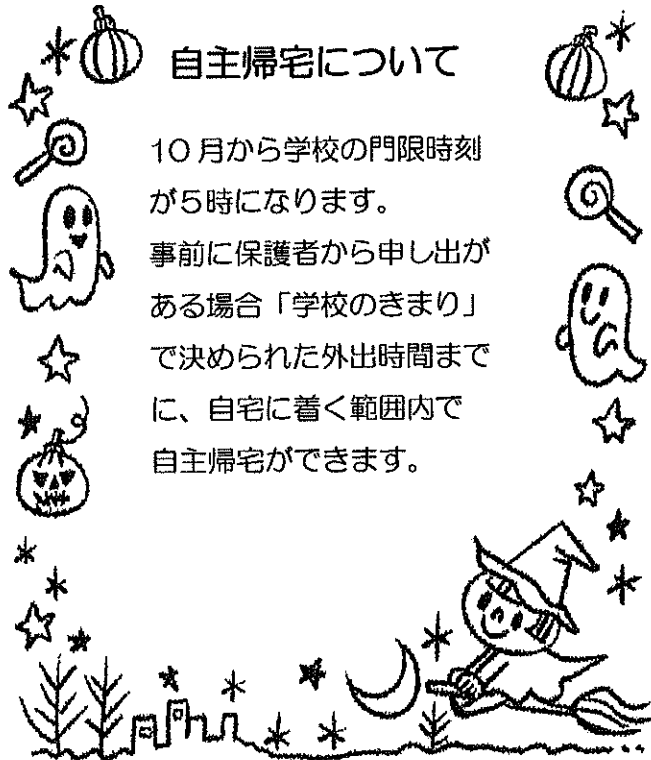 自主帰宅について
10月から学校の門限時刻
が5時になります。
事前に保護者から申し出が
ある場合「学校のきまり」
で決められた外出時間まで
に、自宅に着く範囲内で
自主帰宅ができます。